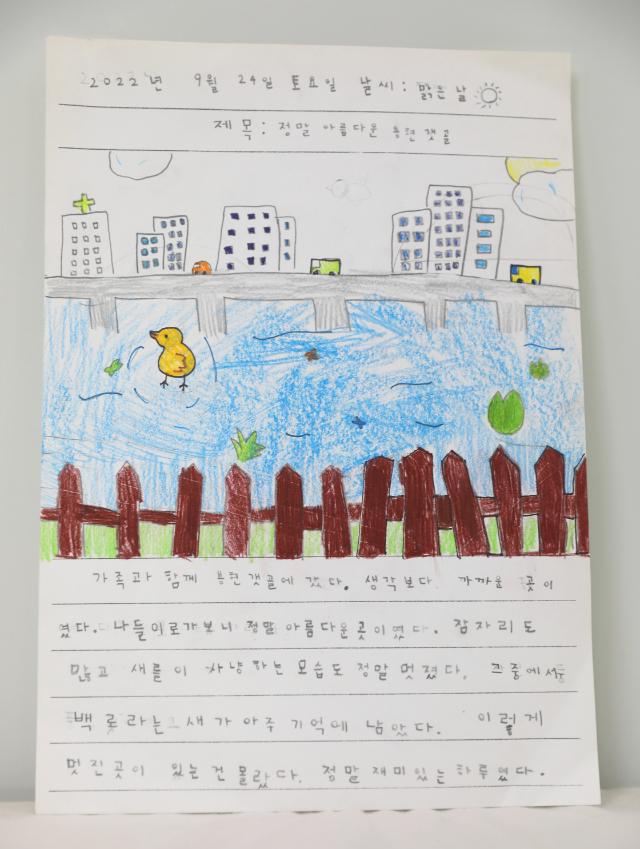 2022년 9월 24일 토요일 날씨: 맑은 날
제목: 정말 아름다운 용현 갯골
가족과 함께 용현갯골에 갔다. 생각보다 가까운 곳이
였다. 나들이로가보니 정말 아름다운곳이였다. 잠자리도
많고 새들이 사냥하는 모습도 정말 멋졌다. 그중에서
백로라는 새가 아주 기억에 남았다. 이렇게
멋진곳이 있는건 몰랐다. 정말 재미있는하루였다.